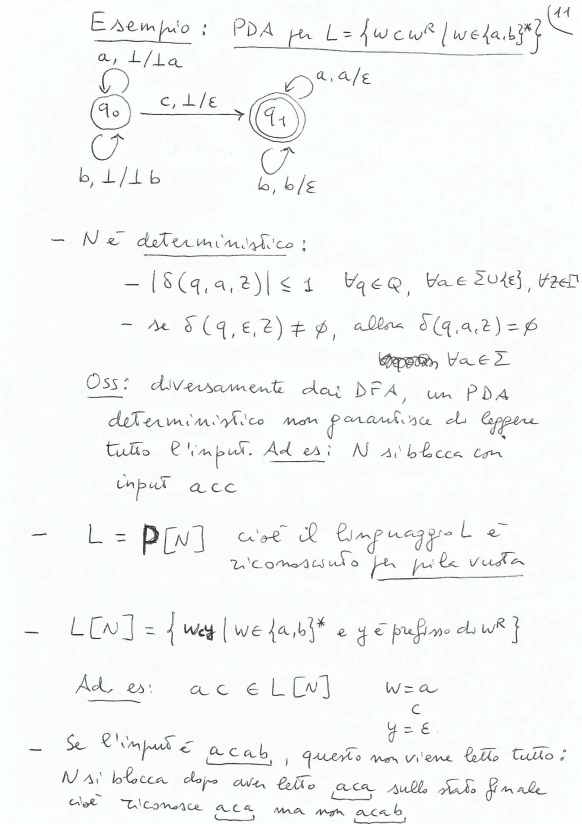 11
Esempio: PDA per L = {w c w^R | w ∈ {a,b}*}
a, ⊥/⊥a
a, a/ε
q₀
c, ⊥/ε
q₁
b, ⊥/⊥b
b, b/ε
- N è deterministico:
- |δ(q,a,z)| ≤ 1 ∀q∈Q, ∀a∈Σ∪{ε}, ∀z∈Γ
- se δ(q,ε,z) ≠ ∅, allora δ(q,a,z) = ∅
∀a∈Σ
Oss: diversamente dai DFA, un PDA
deterministico non garantisce di leggere
tutto l'input. Ad es: N si blocca con
input acc
- L = P[N] cioè il linguaggio L è
riconosciuto per pila vuota
- L[N] = {wcy | w∈{a,b}* e y è prefisso di w^R}
Ad es: ac ∈ L[N] w = a
c
y = ε
- Se l'input è acab, questo non viene letto tutto:
N si blocca dopo aver letto aca sullo stato finale
cioè riconosce aca ma non acab